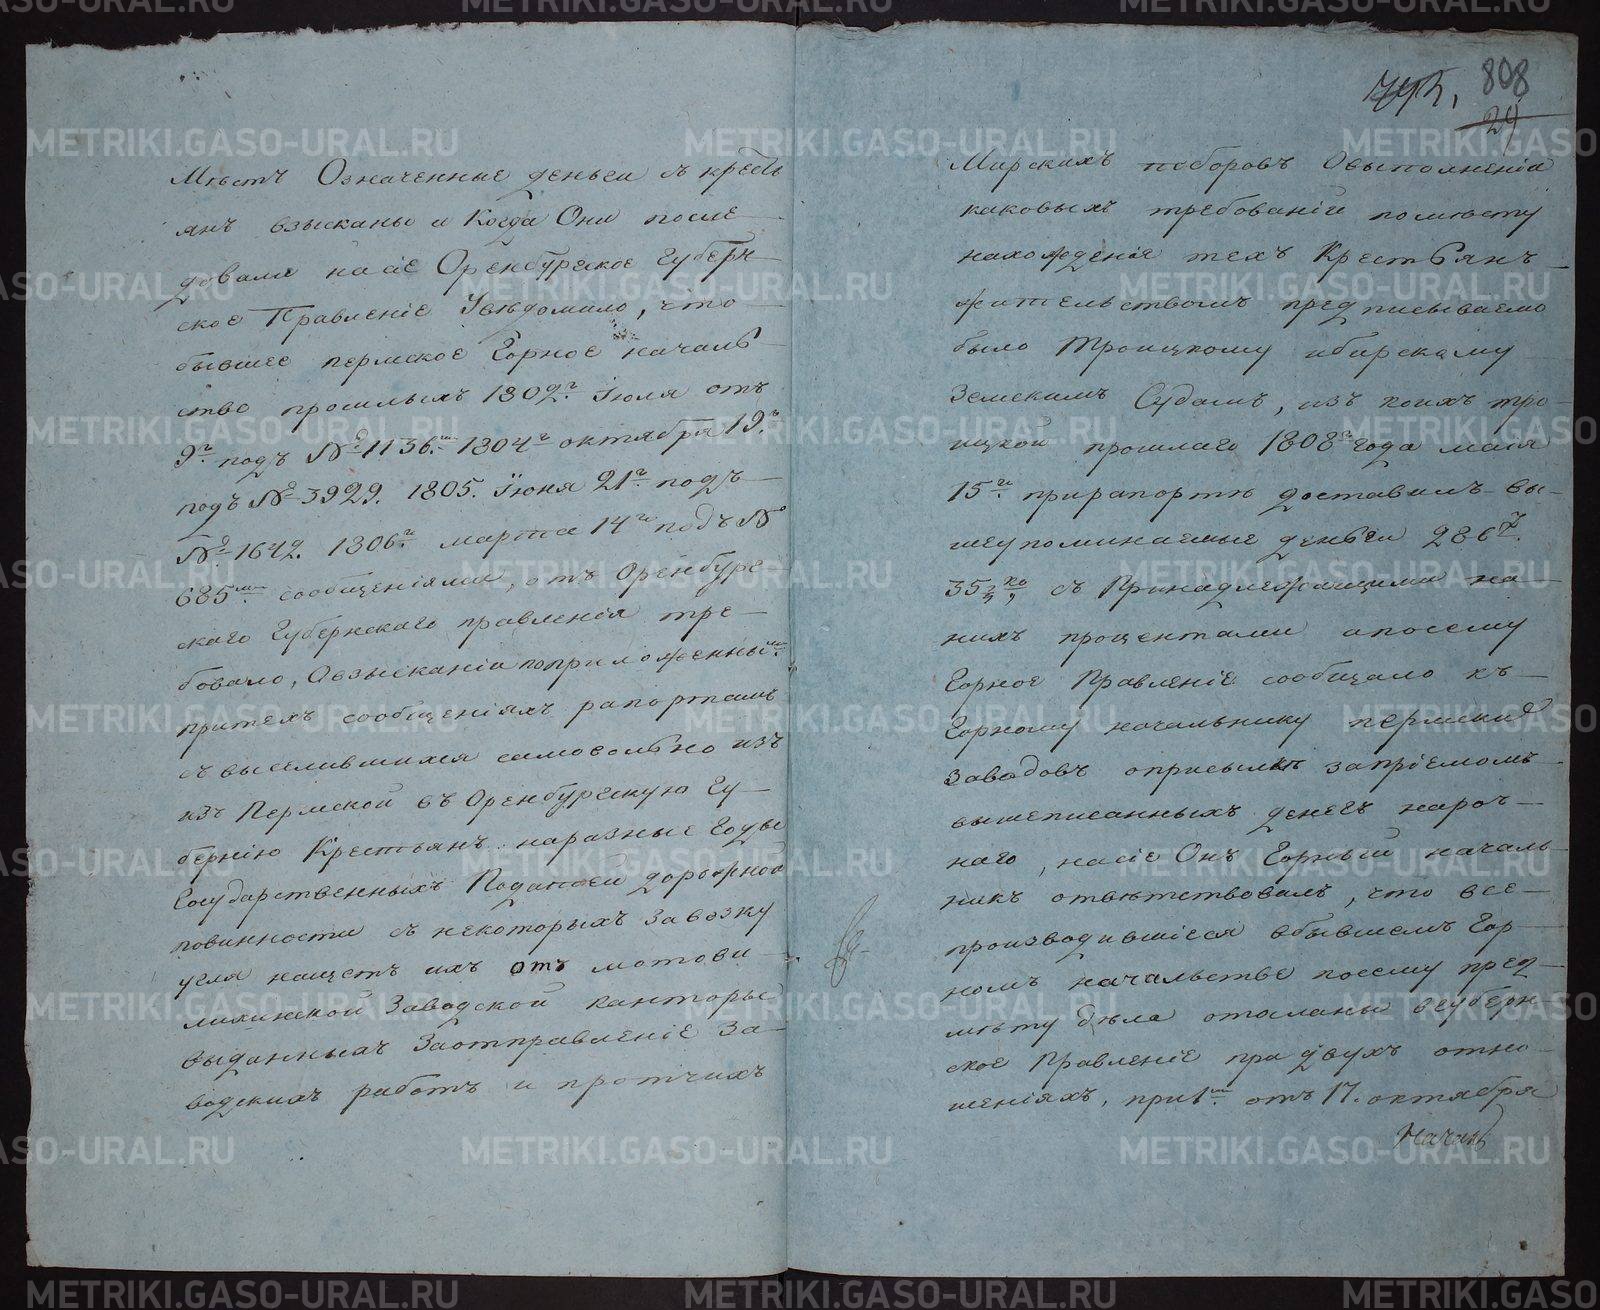 Мѣстъ Означенные деньги съ кресть
янъ взысканы и Когда Они после
довали на сіе Оренбургское Губерн
ское Правленіе Увѣдомило, что
бывшее пермское Горное началь
ство прошлыхъ 1802г. Іюля отъ
9г. подъ № 1136.м 1804г октября 19.г
подъ № 3929. 1805. Іюня 21г. подъ
№ 1642. 1806г. марта 14го подъ №
685м. сообщеніями, отъ Оренбург
скаго Губернскаго правленія тре
бовало, Овзысканіи поприложенны.мъ
притехъ сообщеніяхъ рапортамъ
съ выселившихся самовольно изъ
изъ Пермской въ Оренбургскую Гу
бернію Крестьянъ наразные Годы
Государственныхъ Податей дорожной
повинности съ некоторыхъ Завозку
угля нащетъ ихъ отъ мотови
лихинской Заводской канторы
выданныхъ Заотправленіе За
водскихъ работъ и протчихъ
808
24
Мирскихъ поборовъ Овыполненіи
каковыхъ требованій помѣсту
нахожденія техъ Крестьянъ
жительствомъ предписываемо
было Троицкому ибирскому
Земскимъ Судамъ, изъ коихъ тро
ицкой прошлаго 1808г года маія
15г. прирапортѣ доставилъ вы
шеупоминаемые деньги 286р.
35 2/4 ко, съ Принадлежащими на
нихъ процентами апосему
Горное Правленіе сообщало къ
Горному начальнику пермскихъ
Заводовъ оприсылкѣ запріемомъ
вышеписанныхъ денегъ нароч
наго, насіе Онъ Горный началь
никъ отвѣтствовалъ, что все
производившіеся вбывшемъ Гор
номъ начальстве посему пред
мѣту дѣла отосланы вгуберн
ское Правленіе при двухъ отно
шеніяхъ, при1м. отъ 17. октября
Началь
METRIKI.GASO-URAL.RU